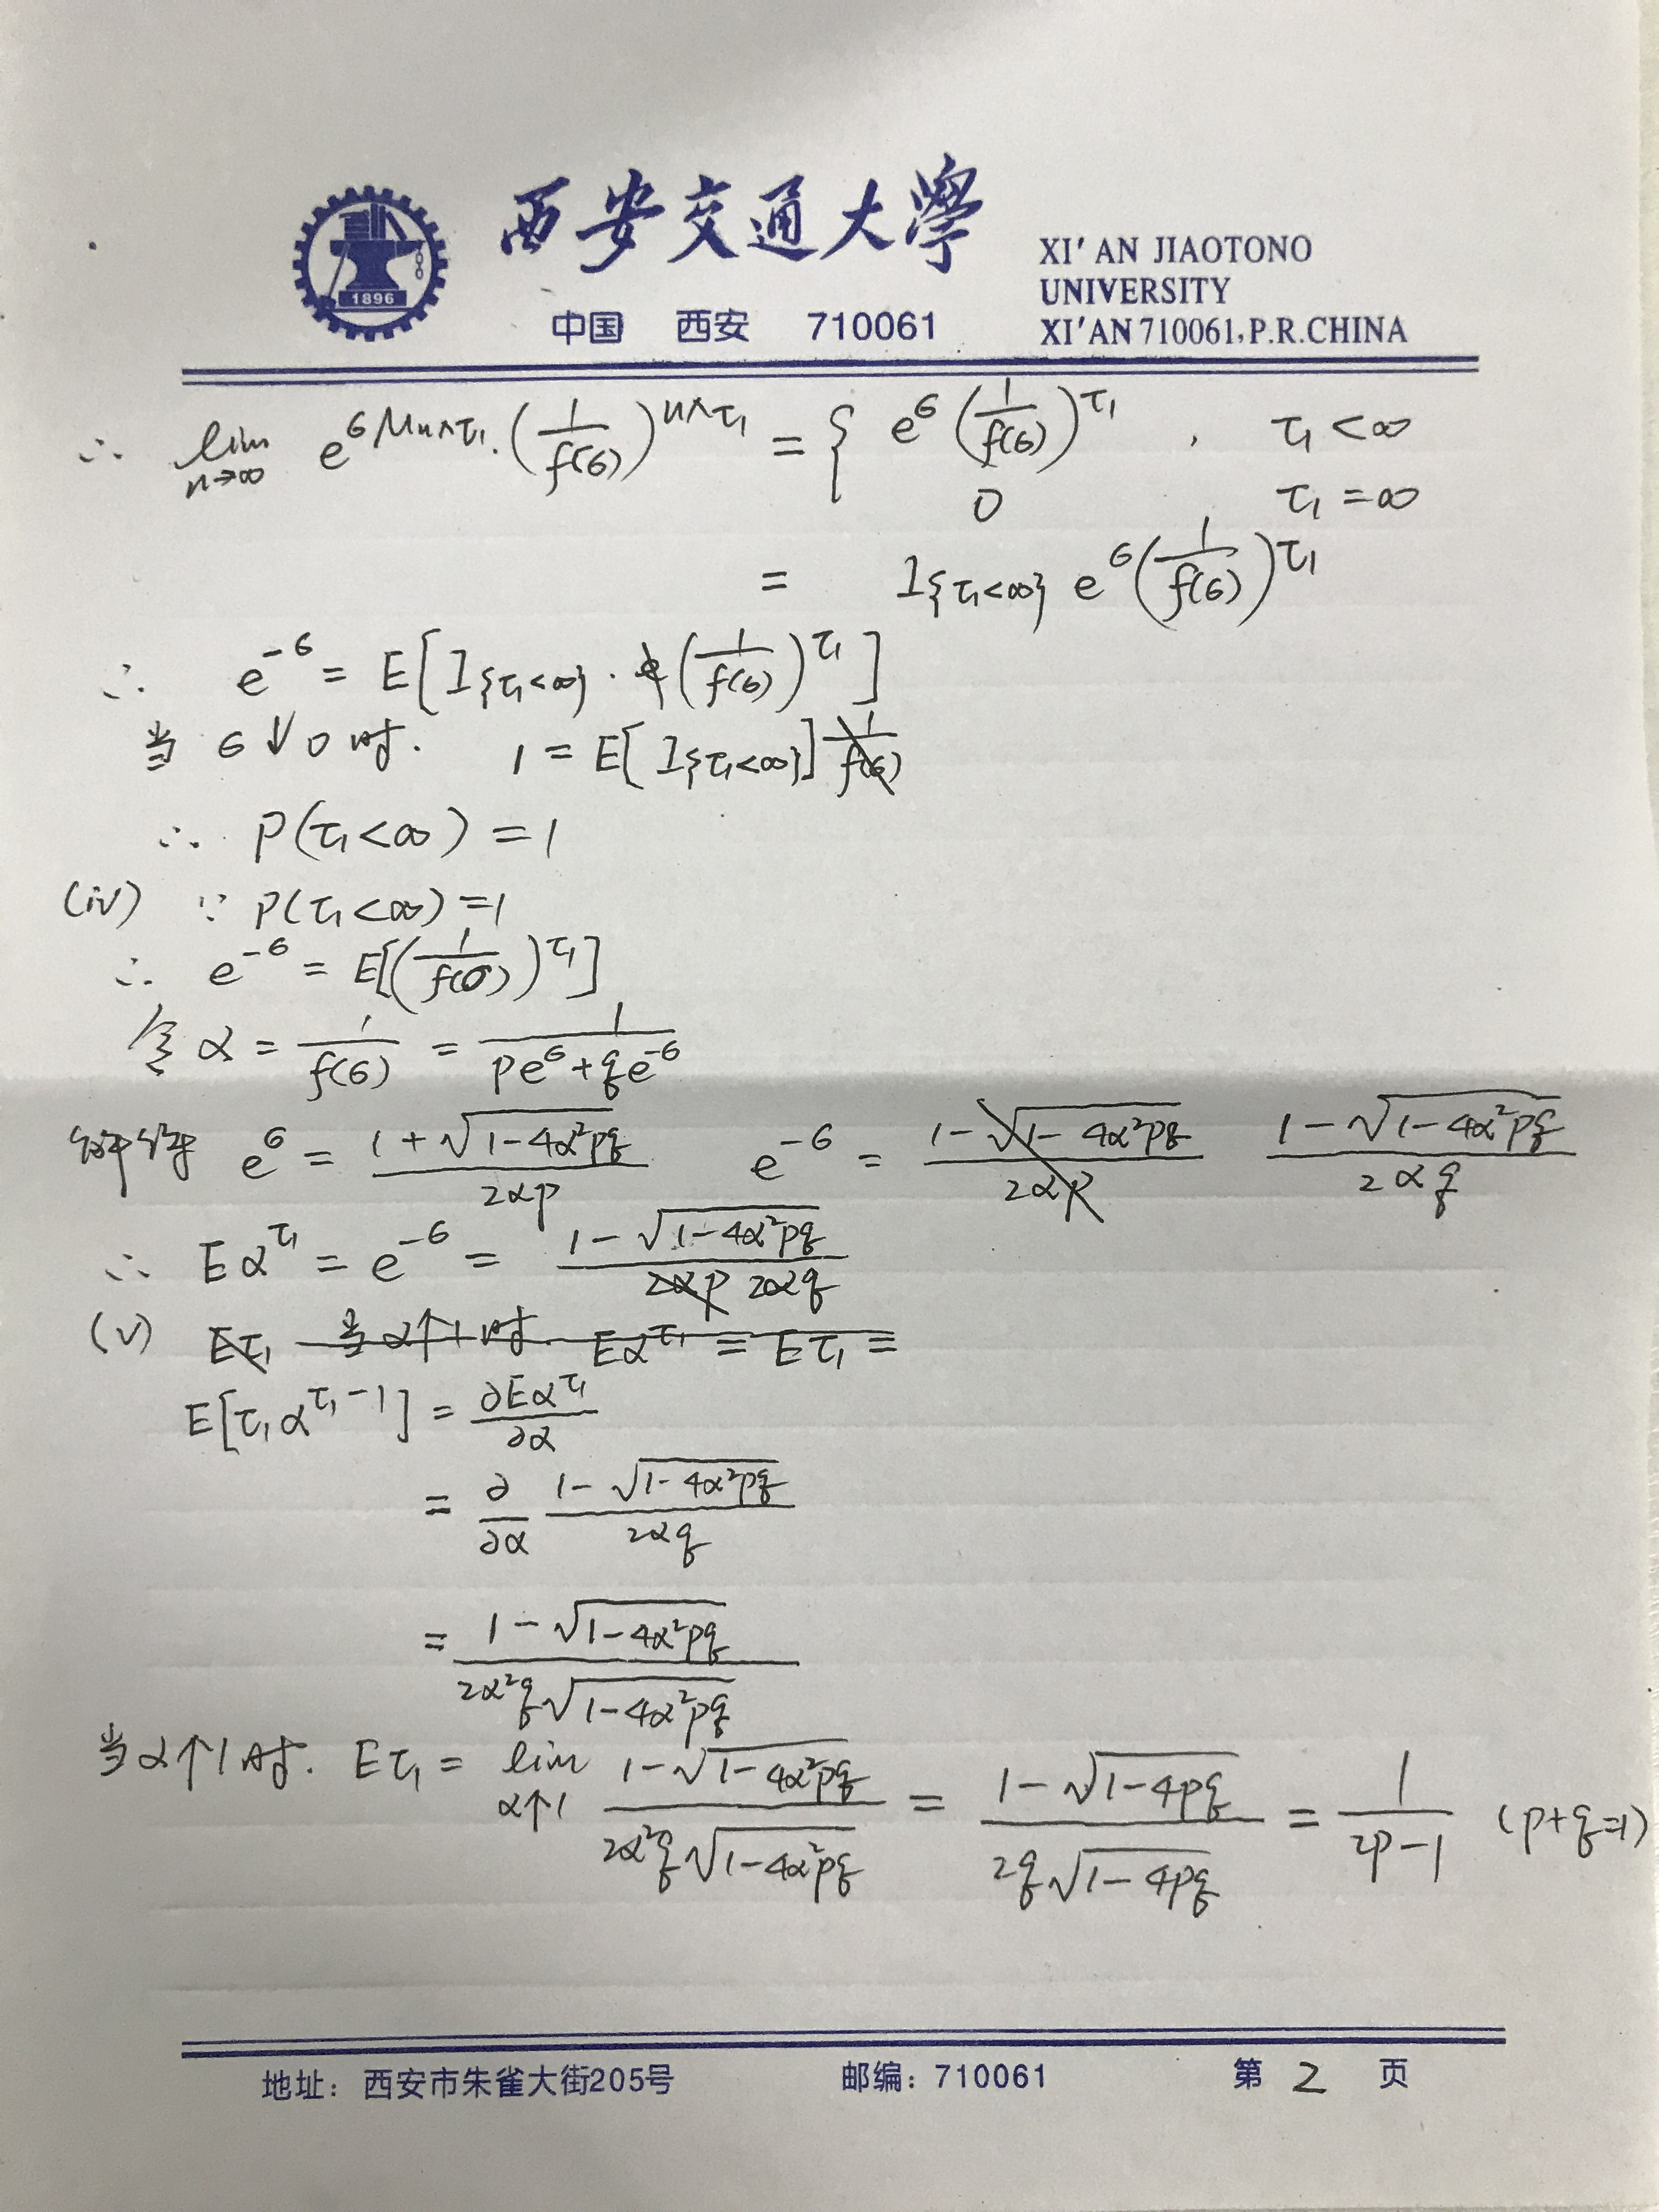 西安交通大學
XI'AN JIAOTONO
UNIVERSITY
XI'AN 710061, P.R.CHINA
1896
中国 西安 710061
∴ lim_{n→∞} e^{σM_{n∧τ₁}} · (1/f(σ))^{n∧τ₁} = { e^σ (1/f(σ))^{τ₁} , τ₁<∞
0 τ₁=∞
= I_{{τ₁<∞}} e^σ (1/f(σ))^{τ₁}
∴ e^{-σ} = E[I_{{τ₁<∞}} · (1/f(σ))^{τ₁}]
当 σ↓0 时. 1 = E[I_{{τ₁<∞}}]
∴ P(τ₁<∞) = 1
(iv) ∵ P(τ₁<∞) = 1
∴ e^{-σ} = E[(1/f(σ))^{τ₁}]
令 α = 1/f(σ) = 1/(pe^σ+qe^{-σ})
解得 e^σ = (1+√(1-4α²pq))/(2αp) e^{-σ} = (1-√(1-4α²pq))/(2αp) (1-√(1-4α²pq))/(2αq)
∴ Eα^{τ₁} = e^{-σ} = (1-√(1-4α²pq))/(2αp 2αq)
(v) Eτ₁ 当 α↑1 时. Eα^{τ₁} = Eτ₁ =
E[τ₁α^{τ₁-1}] = ∂Eα^{τ₁}/∂α
= ∂/∂α (1-√(1-4α²pq))/(2αq)
= (1-√(1-4α²pq))/(2α²q√(1-4α²pq))
当α↑1时. Eτ₁ = lim_{α↑1} (1-√(1-4α²pq))/(2α²q√(1-4α²pq)) = (1-√(1-4pq))/(2q√(1-4pq)) = 1/(2p-1) (p+q=1)
地址：西安市朱雀大街205号 邮编：710061 第 2 页